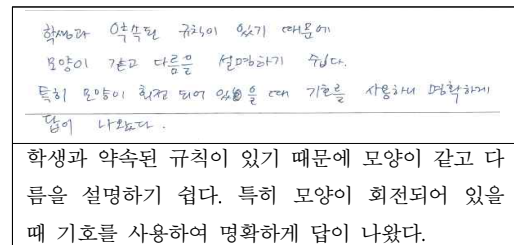 학생과 약속된 규칙이 있기 때문에
모양이 같고 다름을 설명하기 쉽다.
특히 모양이 회전 되어 있을 때 기호를 사용하니 명확하게
답이 나왔다.
학생과 약속된 규칙이 있기 때문에 모양이 같고 다
름을 설명하기 쉽다. 특히 모양이 회전되어 있을
때 기호를 사용하여 명확하게 답이 나왔다.